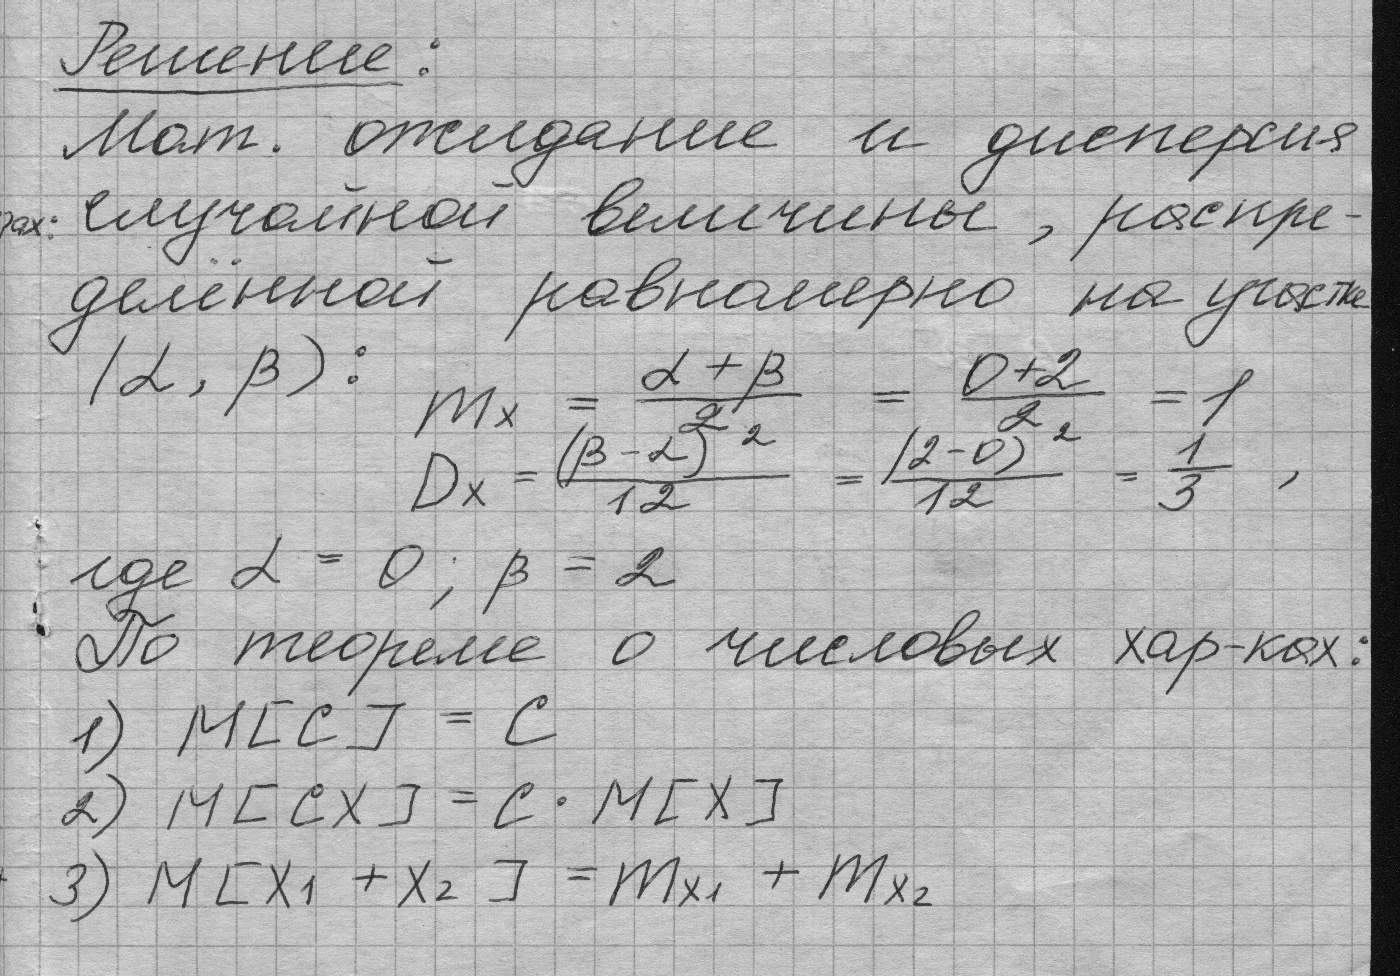 Решение:
Мат. ожидание и дисперсия
рах: случайной величины, распре-
делённой равномерно на участке
(α, β):
mx = (α + β)/2 = (0+2)/2 = 1
Dx = (β - α)²/12 = (2-0)²/12 = 1/3 ,
где α = 0; β = 2
По теореме о числовых хар-ках:
1) M[C] = C
2) M[CX] = C · M[X]
3) M[X1 + X2] = mx1 + mx2